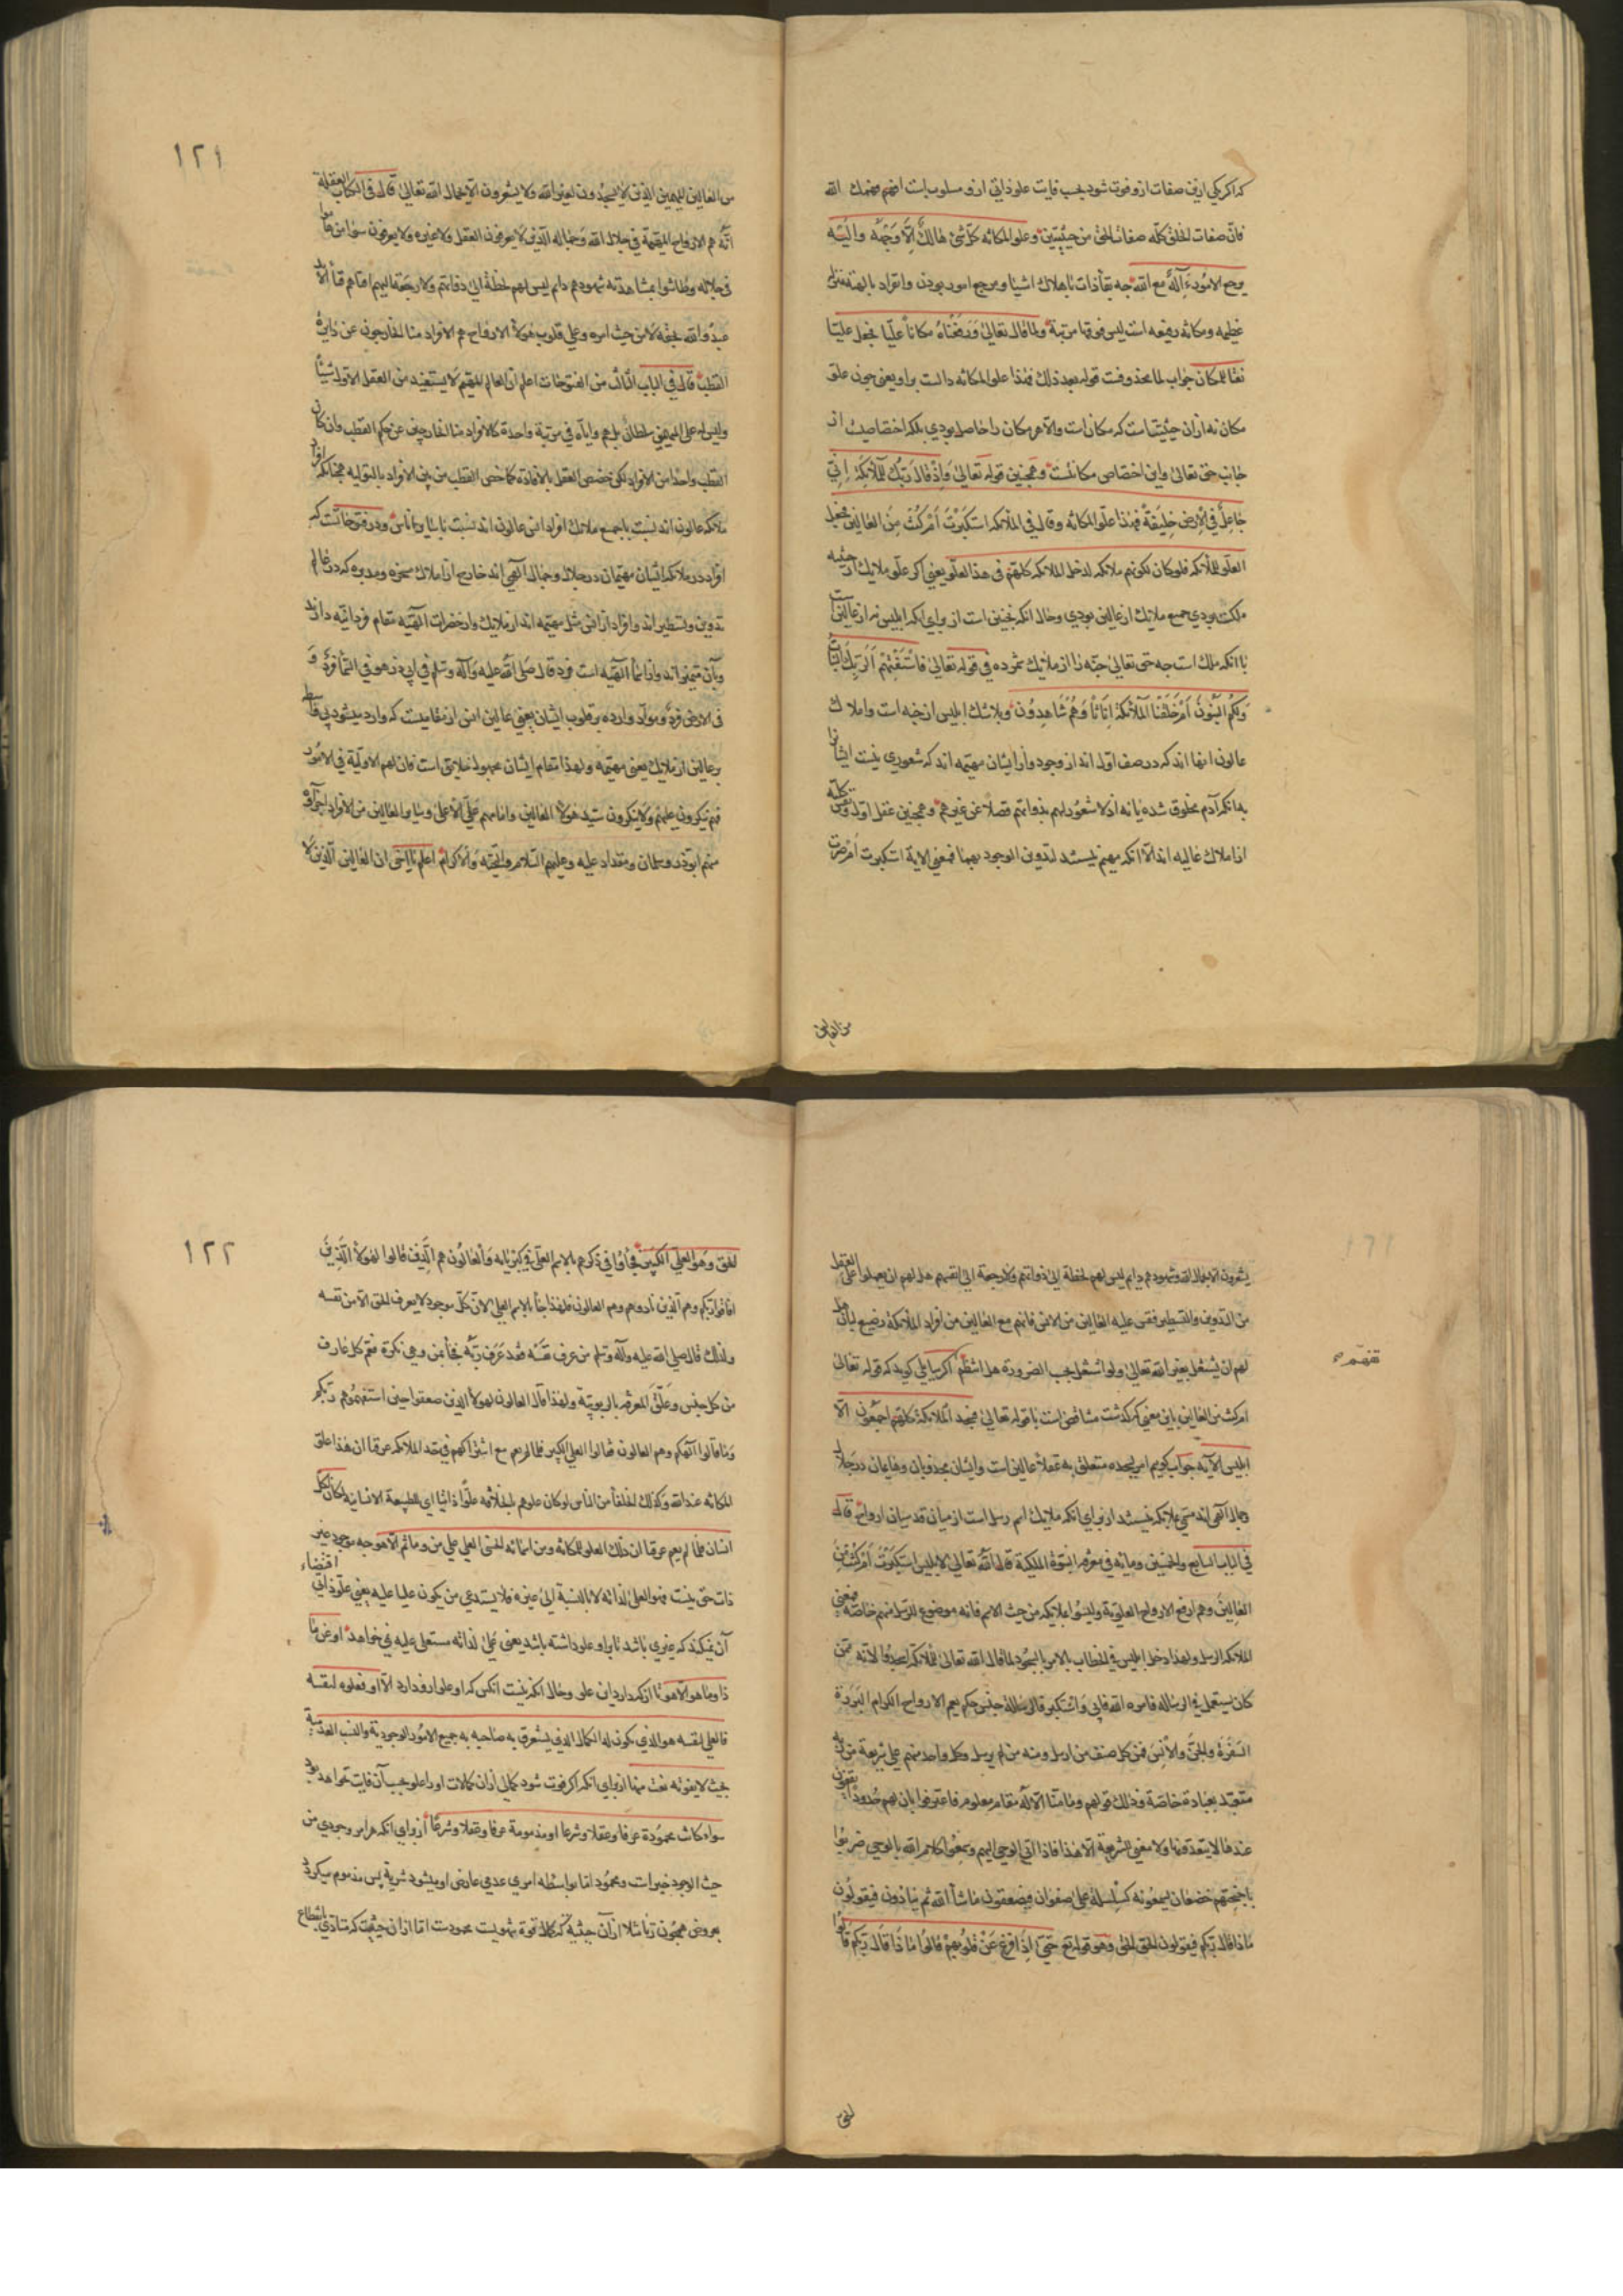 که اگر یکی ازین صفات ازو فوت شود بحسب فایت علو ذاتی ازو مسلوب است افهم فهمك الله
فانّ صفات الخلق کلّه صفات الحق من حیثیتین وعلو المکانه کلّ شیٔ هالكٌ الّا وَجْهَه والیْه
یرجع الامور ءَاِلٰهٌ مع الله چه بقأ ذات با هلاك اشیا و مرجع امور بودن و انفراد بالهیّة منزلتی
عظیمه و مکانه رفیعه است لیس فوقها مرتبة ولمّا قال تعالیٰ وَرَفَعْنَاهُ مکاناً علیّاً فجعل علیّاً
نعتاً للمکان جواب لمّا محذوفست قوله بعد ذلك فهذا علو المکانه دالست براو یعنی چون علو
مکان نه ازان حیثیتاست که مکان است والّا هر مکان را حاصل بودی بلکه اختصاصیت از
جانب حق تعالیٰ واین اختصاص مکانتست وهمچنین قوله تعالیٰ وَاِذْ قَالَ رَبُّكَ لِلْمَلٰٓئِکَةِ اِنّی
جَاعِلٌ فِی الْاَرْضِ خَلِیفَةً فهذا علّو المکانه وقال فی الملائکه اَسْتَکْبَرْتَ اَمْ کُنْتَ مِنَ العَالِینَ فجعل
العلّو للملائکه فلو کان لکونهم ملائکه لدخل الملائکه کلّهم فی هذا العلّو یعنی اگر علّو ملایك از حیثیه
ملکیت بودی جمیع ملایك از عالین بودی وحال آنکه نچنین است از برای آنکه ابلیس نه از عالین است
با آنکه ملك است چه حق تعالیٰ جنّه را از ملایك شمرده فی قوله تعالیٰ فاسْتَفْتِهِمْ اَلِرَبِّكَ الْبَنَاتُ
وَلَهُمُ الْبَنُونَ اَمْ خَلَقْنَا الْمَلٰٓئِکَةَ اِنَاثاً وَهُمْ شَاهِدُونَ وبلا شك ابلیس از جنّه است واملاك
عالون آنها اند که در صف اول اند از وجود وار ایشان مهیّمه اند که شعوری نیست ایشان را
به آنکه آدم مخلوق شده یا نه اذ لا شعور لهم بذواتهم فضلاً عن غیرهم وهمچنین عقل اول ونفس کلّیّه
از املاك عالیه اند الّا آنکه مهیّم نیستند لتدوین الوجود بهما فمعنی الایة استکبرت ام صرت
من العالین
۱۲۱
من العالین المهیّمین الذین لا یسجدون لغیر الله ولا یشعرون الّا بجمال الله تعالیٰ قال فی کتاب العقلة
انّه هم الارواح المهیّمة فی جلال الله وجماله الّذین لا یعرفون العقل ولا غیره ولا یعرفون سوا من هاموا
فی جلاله وطاشوا بمشاهدته شهودهم دایم لیس لهم لحظة الی ذواتهم ولا رجعة الیهم افناهم فأ الأبد
عبدوا الله بحقّه لا من حیث امره وعلی قلوب هؤلاء الارواح هم الافراد منا الخارجون عن دایرة
القطب قال فی الباب الثالث من الفتوحات اعلم انّ العالم المهیّم لا یستفید من العقل الاول شیئاً
ولیس له علی المهیّمین سلطان بل هم وایّاه فی مرتبة واحدة کالافراد منا الخارجین عن حکم القطب وان کان
القطب واحداً من الافراد لکن خصّص العقل بالافادة کما خص القطب من بین الافراد بالتولیه همچنانکه افراد
ملائکه عالون اند نسبت با جمیع ملایك افراد انس عالون اند نسبت با سایر اناس ودر فتوحاتست که
افراد در ملائکه ایشان مهیّمان در جلال وجمال الٓهی اند خارج از املاك مسخّره ومدبّره که در عالم
تدوین وتسطیر اند وافراد از انس مثل مهیّمه اند از ملایك واز حضرات الٓهیّه مقام فردانیّه دارند
وبآن متمیّز اند واز اسمأ الٓهیّه است فرد قال صلی الله علیه وآله وسلم فی ابی ذر هو فی السّمأ فرد و
فی الارض فردٌ ومواد وارده بر قلوب ایشان یعنی عالین انس از مقامیست که وارد میشود بی واسطه
بر عالین از ملایك یعنی مهیّمه ولهذا مقام ایشان مجهول خلایق است فان لهم الاولیة فی الامور
فهم ینکرون علیهم ولا ینکرون سیّد هؤلاء العالین وامامهم علیّ الاعلی وسایر العالین من الافراد اجزاؤه
منهم ابوذر وسلمان ومقداد علیه وعلیهم السّلام والتحیّه والاکرام اعلم یا اخی ان العالین الّذین لا
یشعرون الّا بجمال الله شهودهم دایم لیس لهم لحظة الی ذواتهم ولا رجعة الی انفسهم هل لهم ان یعملوا علی العقل
من التدوین والتسطیر فقس علیه العالین من الانس فانّهم مع العالین من افراد الملائکة رضیع لبان هل
لهم ان یشتغل بغیر الله تعالیٰ ولو اشتغل بحسب الضرورة هل انتظم اگر سایلی گوید که قوله تعالیٰ
تفهّم
ام کنت من العالین باین معنی که گذشت مناقض است با قوله تعالیٰ فسجد الملائکة کلّهم اجمعون الّا
ابلیس الآیة جواب گویم امر بسجده متعلق به عقلأ عالین است وایشان مجذوبان وهایمان در جلال
وجمال الٓهی اند مسمّی بملائکه نیستند از برای آنکه ملائك اسم رسل است از میان قدسیان ارواح قال
فی الباب السابع والخمسین ومایه فی معرفه النبوّة الملکیة قال الله تعالی لابلیس استکبرت ام کنت من
العالین وهم ارفع الارواح العلویّة ولیسوا بملائکه من حیث الاسم فانه موضوع للرسل منهم خاصّه فمعنی
الملائکه الرسل ولهذا دخل ابلیس فی الخطاب بالامر بالسجود لمّا قال الله تعالیٰ للملائکة اسجدوا لانّه ممّن
کان یستعمل فی الرساله فامره الله فابی واستکبر قال رساله جنس حکم یعم الارواح الکرام البررة
السفرة والجنّ والانس فمن کل صنف من ارسل ومنه من لم یرسل وکل واحد منهم علی شریعة من ربه
متعبّد بعبادة خاصّة وذلك قولهم وما منّا الّا له مقام معلوم فاعترفوا بان لهم حدوداً یقفون
عندها لا یتعدّونها ولا معنی للشریعة الّا هذا فاذا اتی الوحی الیهم وسمعوا کلام الله بالوحی ضربوا
باجنحتهم خضعان یسمعونه کسلسلة علی صفوان فیصعقون ماشأ الله ثم ینادون فیقولون
ماذا قال ربّکم فیقولون الحق الحق وهو قوله تع حتّیٰ اِذَا فُزِّعَ عَنْ قُلُوبِهِمْ قالوا ماذا قال ربّکم قالوا
الحق
۱۲۲
الحق وهو العلی الکبیر فجأوا فی ذکرهم بالاسم العلی فی کبریایه والعالون هم الّذین قالوا لهؤلاء الّذین
افاقوا ربکم وهم الذین نادوهم وهم العالون فلهذا جأ بالاسم العلی لانّ کلّ موجود لا یعرف الحق الّا من نفسه
ولذلك قال صلی الله علیه وآله وسلم من عرف نفسه فقد عرف ربّه فجأ بمن وهی نکرة فعّم کل عارف
من کل جنس وعلّق المعرفه بالربوبیّة ولهذا قال العالون لهؤلاء الذین صعقوا حین استفهموهم ربکم
وما قالوا الٓهکم وهم العالون فقالوا العلی الکبیر فلما لم یعم مع اشتراکهم فی حد الملائکه عرفنا ان هذا علو
المکانه عند الله وکذلك الخلفأ من الناس لو کان علوهم بالخلافه علّواً ذاتیّاً ای للطبیعة الانسانیة لکان لکل
انسان فلمّا لم یعم عرفنا ان ذلك العلو للمکانه ومن اسمائه الحسنی العلی علی من وما ثم الّا هو چه موجود غیر
ذات حق نیست فهو العلیّ لذاته لا بالنسبة الی غیره فلا یستدعی من یکون علیا علیه یعنی علو ذاتی اقتضاء
آن نمیکند که غیری باشد تا براو علو داشته باشد یعنی علیّ لذاته مستعلی علیه نمیخواهد او عن ما
ذا وما هو الّا هو تا از که دارد آن علو وحال آنکه نیست آنکس که او علو ازو دارد الّا او فعلوه لنفسه
فالعلی لنفسه هو الذی یکون له الکمال الذی یستغرق به صاحبه به جمیع الامور الوجودیة والنسب العدمیة
بحیث لا یفوته نعت منها از برای آنکه اگر فوت شود کمالی ازان کمالات او را علو بحسب آن فایت نخواهد بود
سواء کانت محمودة عرفا وعقلا وشرعا او مذمومة عرفا وعقلا وشرعاً از برای آنکه هر امر وجودی من
حیث الوجود خیر است ومحمود امّا بواسطه امری عدمی عارض او میشود شریة پس مذموم میگردد
بعروض همچون زنا مثلا ازان حیثیه که کمال قوة شهویست محمود است امّا ازان حیثیت که متأدی بانقطاع